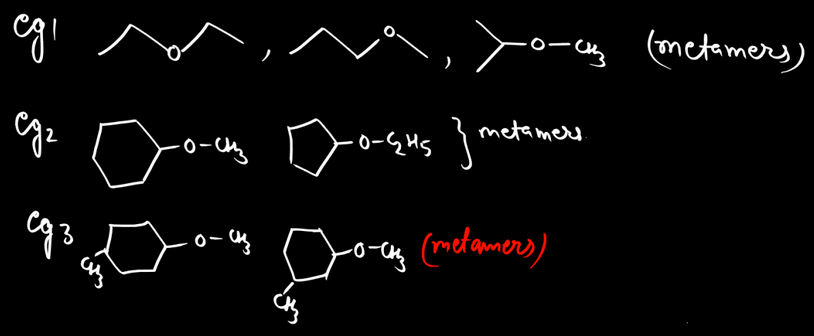 eg1 O , O , O-CH3 (metamers)
eg2 O-CH3 O-C2H5 } metamers
eg3 CH3 O-CH3 CH3 O-CH3 (metamers)